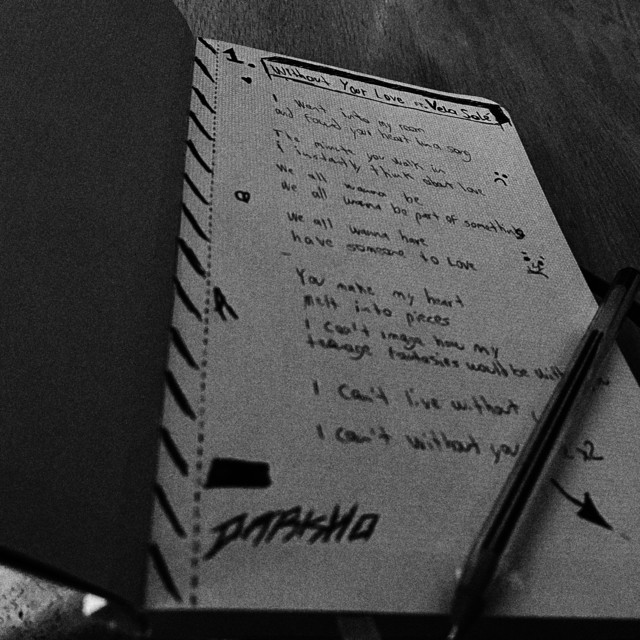 1. Without Your Love :: Vela Sale
I went into my room
and found your heart in a song
The minute you walk in
I instantly think about love
We all wanna be
We all wanna be part of something
We all wanna have
have someone to love
You make my heart
melt into pieces
I can't image how my
teenage fantasies would be
I can't live without
I can't without you
x2